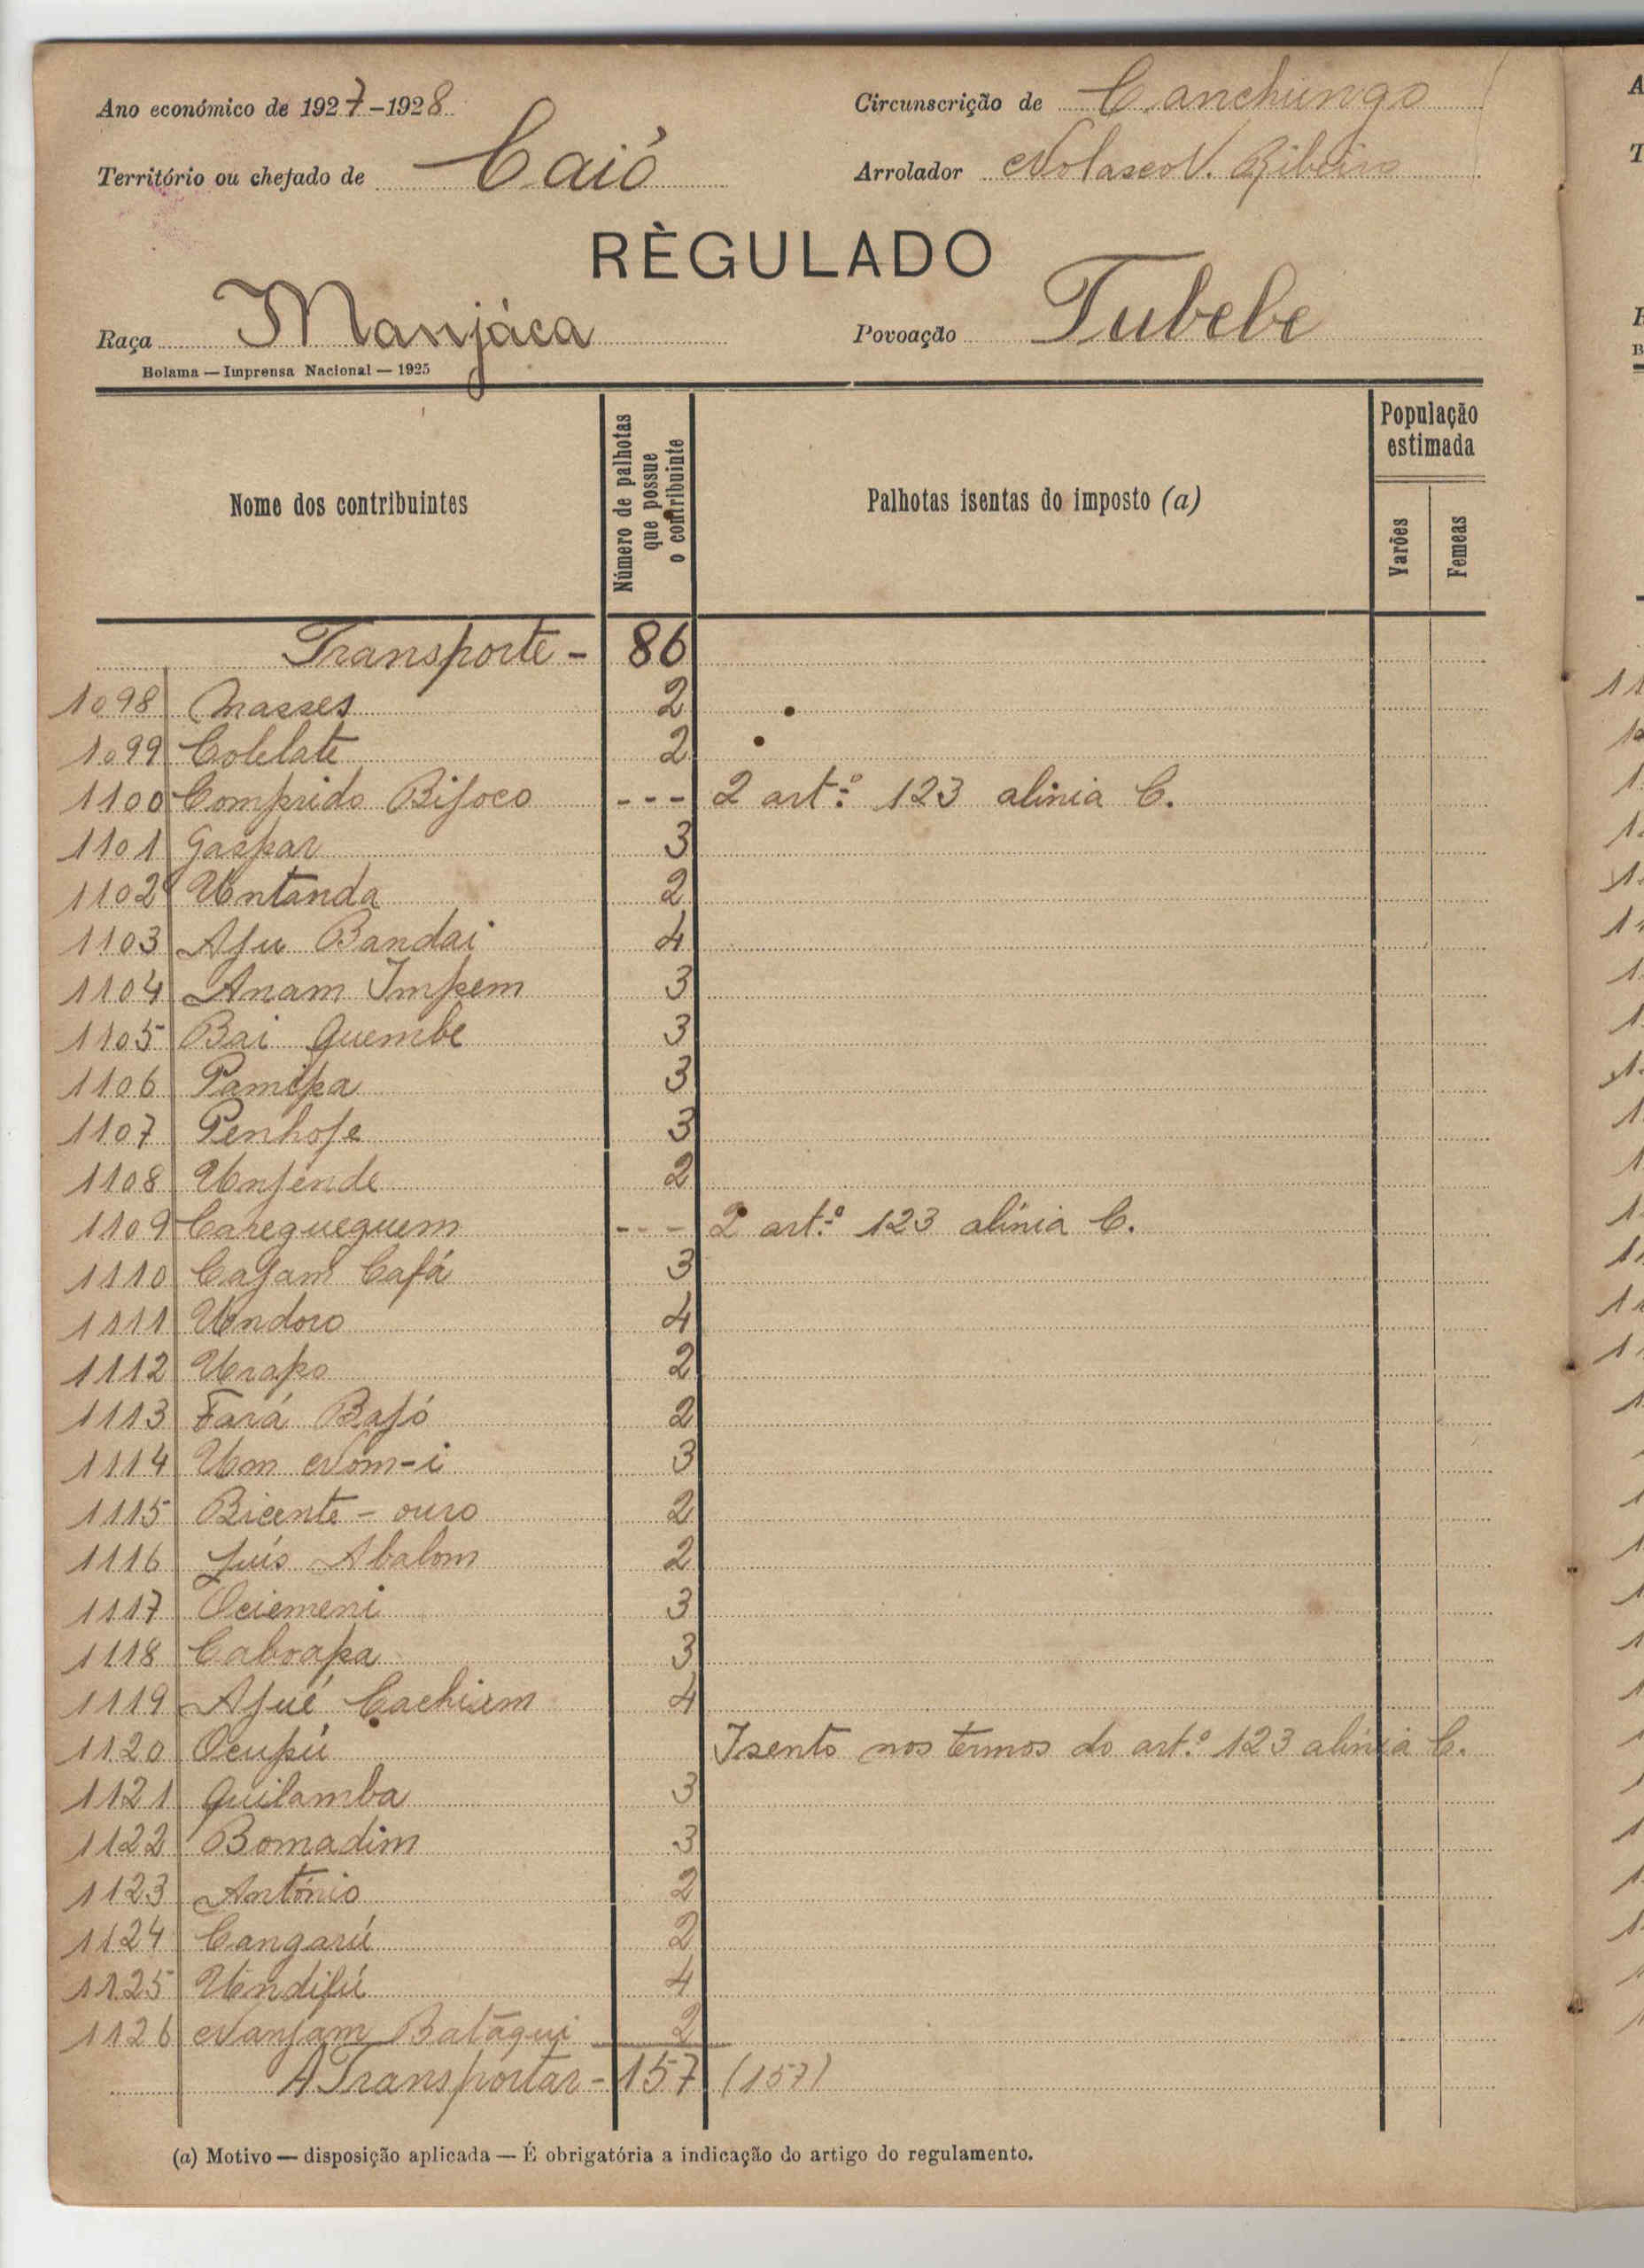 Ano económico de 1927-1928
Circunscrição de Canchungo
Território ou chefado de Caió
Arrolador Nolasco V. Ribeiro
RÈGULADO
Raça Manjáca
Povoação Tubebe
Bolama — Imprensa Nacional — 1925
Nome dos contribuintes
Número de palhotas que possue o contribuinte
Palhotas isentas do imposto (a)
População estimada
Varões
Femeas
Transporte - 86
1098 Masses 2
1099 Colelate 2
1100 Comprido Bifoco --- 2 art.º 123 alinia C.
1101 Gaspar 3
1102 Untanda 2
1103 Afu Bandai 4
1104 Anam Impem 3
1105 Bai Quembe 3
1106 Pamipa 3
1107 Penhofe 3
1108 Unfende 2
1109 Caregueguem --- 2 art.º 123 alínia C.
1110 Cafam Cafá 3
1111 Undoro 4
1112 Urapo 2
1113 Fará Bafó 2
1114 Um Nom-i 3
1115 Bicente - ouro 2
1116 Luís Abalom 2
1117 Ociemeni 3
1118 Caboapa 3
1119 Afué Cachium 4
1120 Ocupú Isento nos termos do art.º 123 alínia C.
1121 Quilamba 3
1122 Bomadim 3
1123 António 2
1124 Cangarú 2
1125 Undifú 4
1126 Nanfam Batãqui 2
A Transportar - 157 (157)
(a) Motivo — disposição aplicada — É obrigatória a indicação do artigo do regulamento.